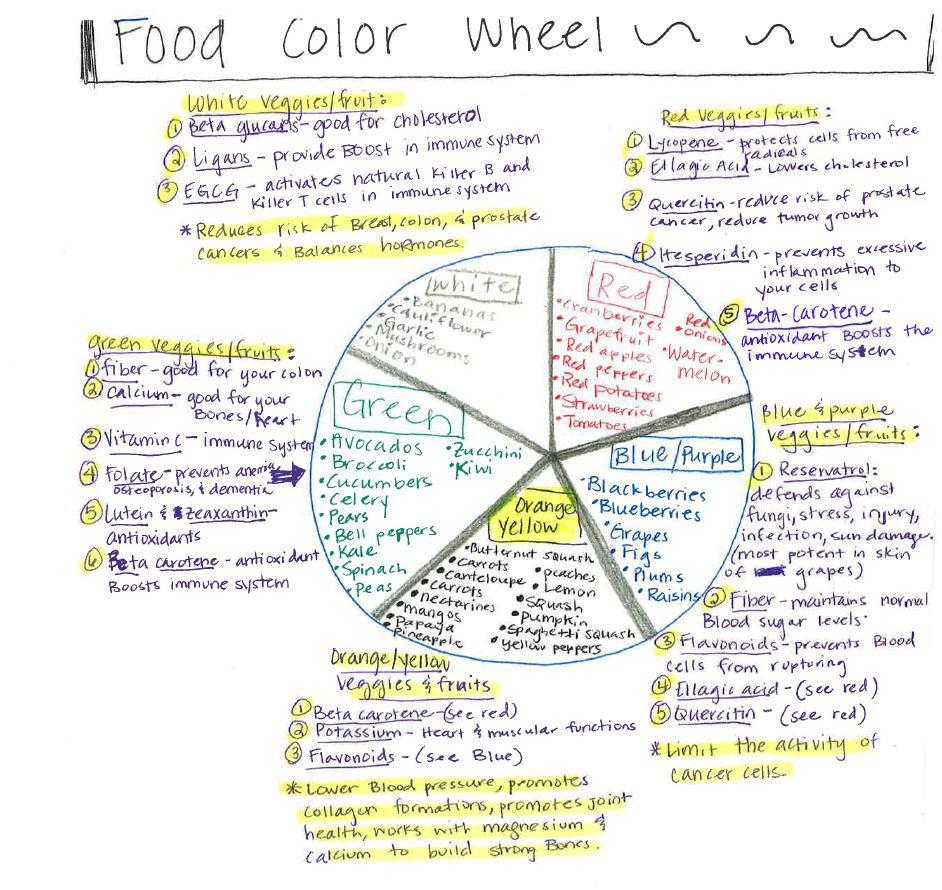 Food Color Wheel
White veggies/fruit:
① Beta glucans - good for cholesterol
② Ligans - provide Boost in immune system
③ EGCG - activates natural killer B and
Killer T cells in immune system
* Reduces risk of Breast, colon, & prostate
cancers & Balances hormones.
Red Veggies/fruits:
① Lycopene - protects cells from free
radicals
② Ellagic Acid - Lowers cholesterol
③ Quercitin - reduce risk of prostate
cancer, reduce tumor growth
④ Hesperidin - prevents excessive
inflammation to
your cells
⑤ Beta-Carotene -
antioxidant Boosts the
immune system
White
• Bananas
• Cauliflower
• Garlic
• Mushrooms
• Onion
Red
• Cranberries
• Grapefruit
• Red apples
• Red peppers
• Red potatoes
• Strawberries
• Tomatoes
• Red
Onions
• Water-
melon
green veggies/fruits:
① fiber - good for your colon
② Calcium - good for your
Bones/Heart
③ Vitamin C - immune system
④ Folate - prevents anemia,
osteoporosis, & dementia
⑤ Lutein & zeaxanthin -
antioxidants
⑥ Beta carotene - antioxidant
Boosts immune system
Green
• Avocados
• Broccoli
• Cucumbers
• Celery
• Pears
• Bell peppers
• Kale
• Spinach
• Peas
• Zucchini
• Kiwi
Blue/Purple
• Blackberries
• Blueberries
• Grapes
• Figs
• Plums
• Raisins
Blue & purple
veggies/fruits:
① Reservatrol:
defends against
fungi, stress, injury,
infection, sun damage.
(most potent in skin
of grapes)
② Fiber - maintains normal
Blood sugar levels.
③ Flavonoids - prevents Blood
cells from rupturing
④ Ellagic acid - (see red)
⑤ Quercitin - (see red)
* Limit the activity of
cancer cells.
Orange
Yellow
• Butternut squash
• Carrots
• Canteloupe
• carrots
• nectarines
• mangos
• Papaya
• Pineapple
• peaches
• Lemon
• Squash
• pumpkin
• Spaghetti squash
• yellow peppers
Orange/yellow
veggies & fruits
① Beta carotene - (see red)
② Potassium - Heart & muscular functions
③ Flavonoids - (see Blue)
* Lower Blood pressure, promotes
collagen formations, promotes joint
health, works with magnesium &
calcium to build strong Bones.